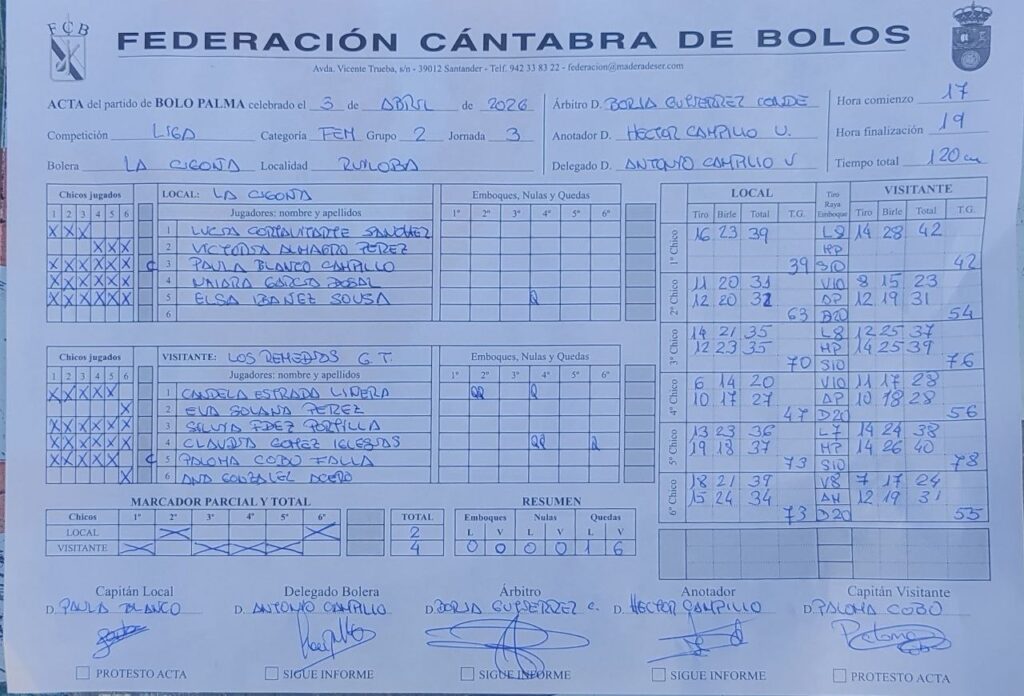 FCB
FEDERACIÓN CÁNTABRA DE BOLOS
Avda. Vicente Trueba, s/n - 39012 Santander - Telf. 942 33 83 22 - federacion@maderadeser.com
ACTA del partido de BOLO PALMA celebrado el 3 de ABRIL de 2026
Competición LIGA Categoría FEM Grupo 2 Jornada 3
Bolera LA CIGOÑA Localidad RUILOBA
Árbitro D. BORJA GUTIERREZ CONDE
Anotador D. HECTOR CAMPILLO V.
Delegado D. ANTONIO CAMPILLO V
Hora comienzo 17
Hora finalización 19
Tiempo total 120 m
Chicos jugados LOCAL: LA CIGOÑA Emboques, Nulas y Quedas
1 2 3 4 5 6 Jugadores: nombre y apellidos 1º 2º 3º 4º 5º 6º
X X X 1 LUCIA SANCHEZ
X X X 2 VICTORIA ALMAGRO PEREZ
X X X X X X C 3 PAULA BLANCO CAMPILLO
X X X X X X 4 NAIARA GARCIA
X X X X X X 5 ELSA IBAÑEZ SOUSA Q
6
Chicos jugados VISITANTE: LOS REMEDIOS G.T. Emboques, Nulas y Quedas
1 2 3 4 5 6 Jugadores: nombre y apellidos 1º 2º 3º 4º 5º 6º
X X X X X 1 CANDELA ESTRADA LINERA QQ Q
X 2 EVA SOLANA PEREZ
X X X X X X 3 SILVIA FDEZ PORTILLA
X X X X X X 4 CLAUDIA GOMEZ IGLESIAS QQ Q
X X X X X C 5 PALOMA COBO FALLA
X 6 ANA GONZALEZ
LOCAL Tiro Raya Emboque VISITANTE
Tiro Birle Total T.G. Tiro Birle Total T.G.
1º Chico 16 23 39 L8 14 28 42
MP
39 S10 42
2º Chico 11 20 31 V10 8 15 23
12 20 32 AP 12 19 31
63 D20 54
3º Chico 14 21 35 L8 12 25 37
12 23 35 MP 14 25 39
70 S10 76
4º Chico 6 14 20 V10 11 17 28
10 17 27 AP 10 18 28
47 D20 56
5º Chico 13 23 36 L7 14 24 38
19 18 37 MP 14 26 40
73 S10 78
6º Chico 18 21 39 V8 7 17 24
15 24 34 AM 12 19 31
73 D20 55
MARCADOR PARCIAL Y TOTAL
Chicos 1º 2º 3º 4º 5º 6º TOTAL
LOCAL X X 2
VISITANTE X X X X 4
RESUMEN
Emboques Nulas Quedas
L V L V L V
0 0 0 0 1 6
Capitán Local Delegado Bolera Árbitro Anotador Capitán Visitante
D. PAULA BLANCO D. ANTONIO CAMPILLO D. BORJA GUTIERREZ C. D. HECTOR CAMPILLO D. PALOMA COBO
Paloma
PROTESTO ACTA SIGUE INFORME SIGUE INFORME SIGUE INFORME PROTESTO ACTA